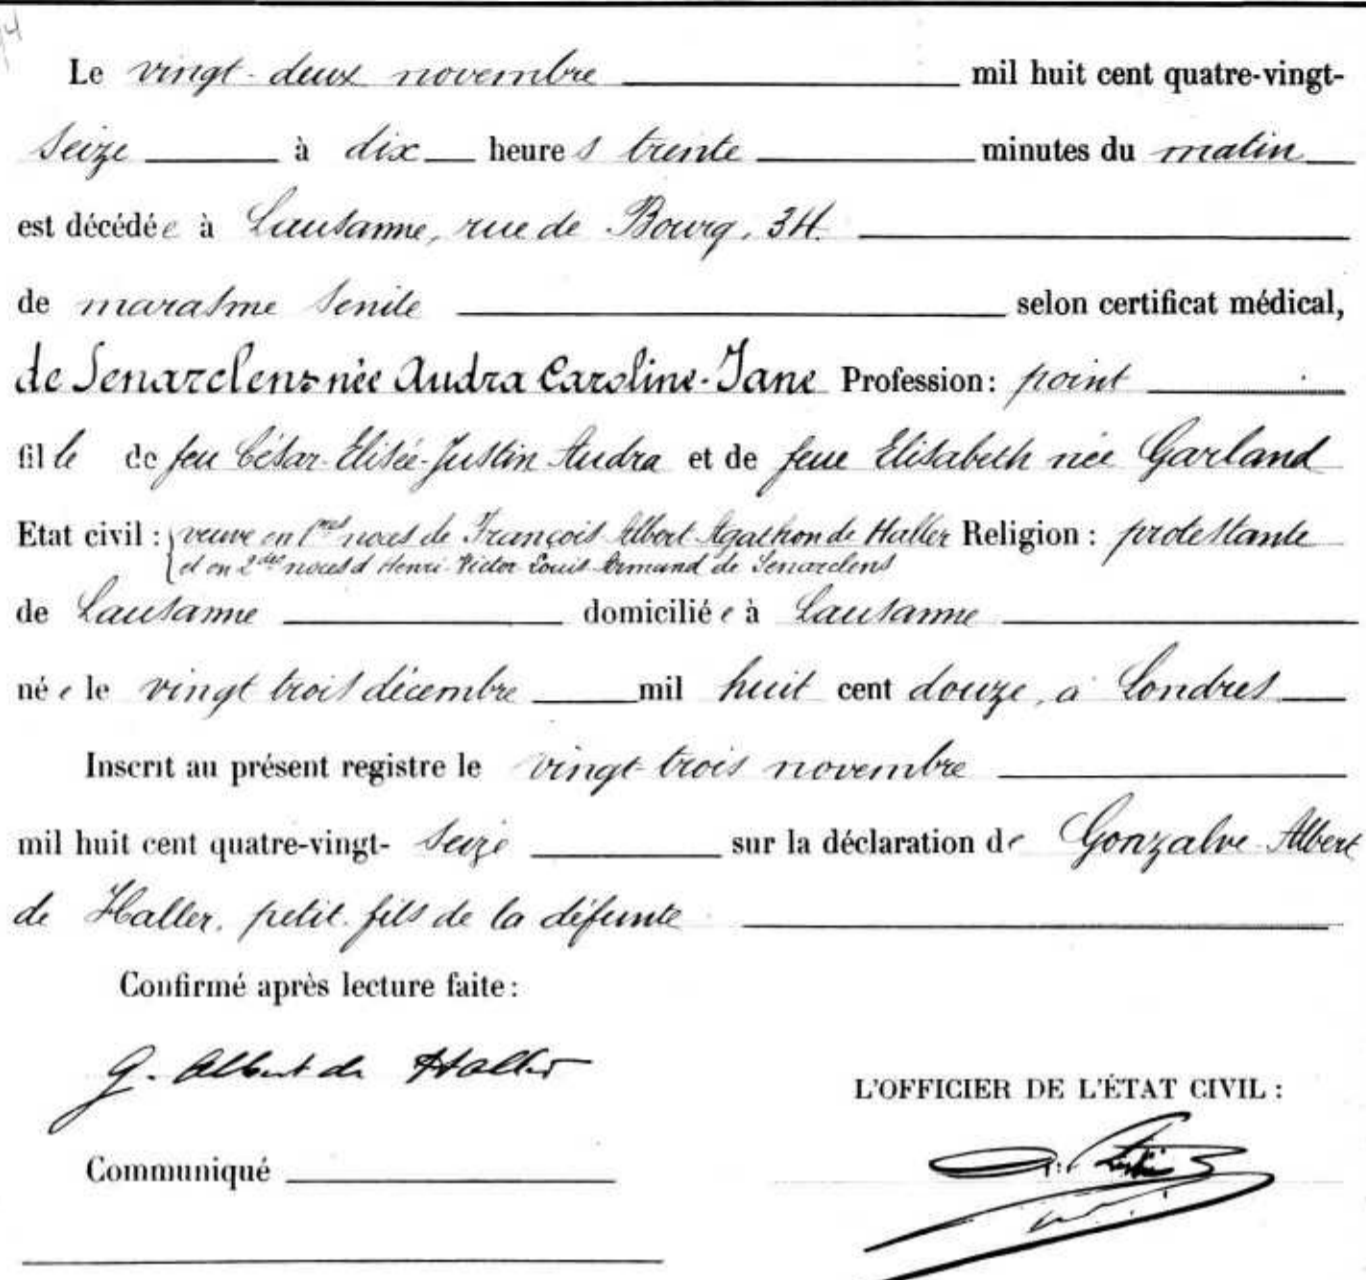 Le vingt-deux novembre mil huit cent quatre-vingt-
seize à dix heures trente minutes du matin
est décédée à Lausanne, rue de Bourg, 34.
de marasme senile selon certificat médical,
de Senarclens née Audra Caroline-Jane Profession: point
fille de feu César-Elisée-Justin Audra et de feue Elisabeth née Garland
Etat civil : veuve en 1res noces de François Albert Agathon de Haller Religion : protestante
et en 2des noces d'Henri-Victor-Louis-Armand de Senarclens
de Lausanne domiciliée à Lausanne
née le vingt trois décembre mil huit cent douze, à Londres
Inscrit au présent registre le vingt-trois novembre
mil huit cent quatre-vingt- seize sur la déclaration de Gonzalve-Albert
de Haller, petit-fils de la défunte
Confirmé après lecture faite :
G. Albert de Haller
L'OFFICIER DE L'ÉTAT CIVIL :
Communiqué